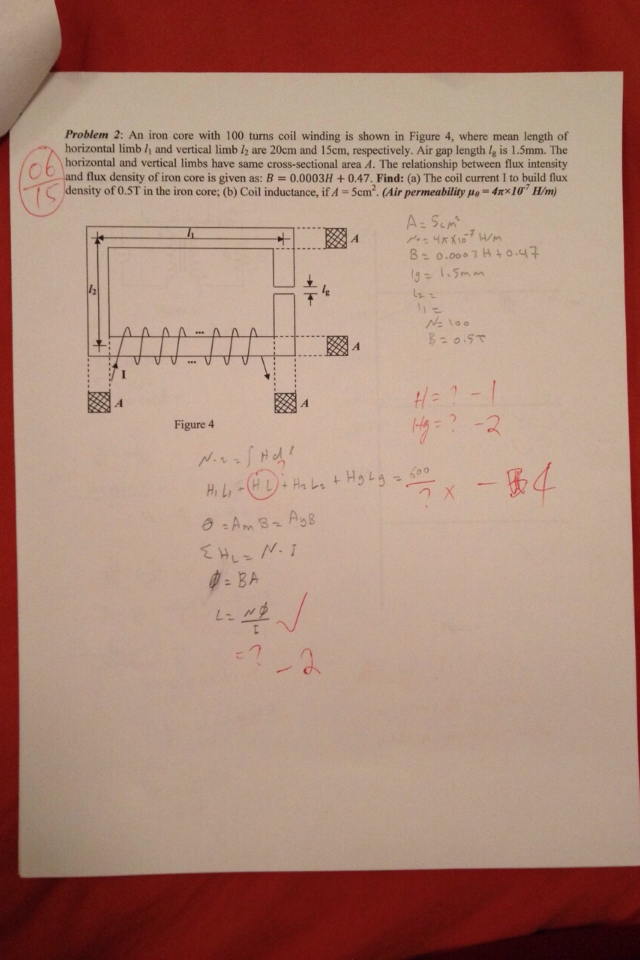 Problem 2: An iron core with 100 turns coil winding is shown in Figure 4, where mean length of
horizontal limb l₁ and vertical limb l₂ are 20cm and 15cm, respectively. Air gap length lg is 1.5mm. The
horizontal and vertical limbs have same cross-sectional area A. The relationship between flux intensity
and flux density of iron core is given as: B = 0.0003H + 0.47. Find: (a) The coil current I to build flux
density of 0.5T in the iron core; (b) Coil inductance, if A = 5cm². (Air permeability μ₀ = 4π×10⁻⁷ H/m)
06
15
l₁
A
l₂
lg
...
...
A
I
A
A
Figure 4
A = 5cm²
= 4πX10⁻⁷ H/m
B = 0.0003H+0.47
lg = 1.5mm
l₂ =
l₁ =
N = 100
B = 0.5T
H = ? -1
Hg = ? -2
= ∫Hdl
?
H₁L₁ + HL + H₂L₂ + HgLg =
? X - 4
= AmB = AgB
ΣHL = N·I
Φ = BA
L = NΦ
I
= ?
-2